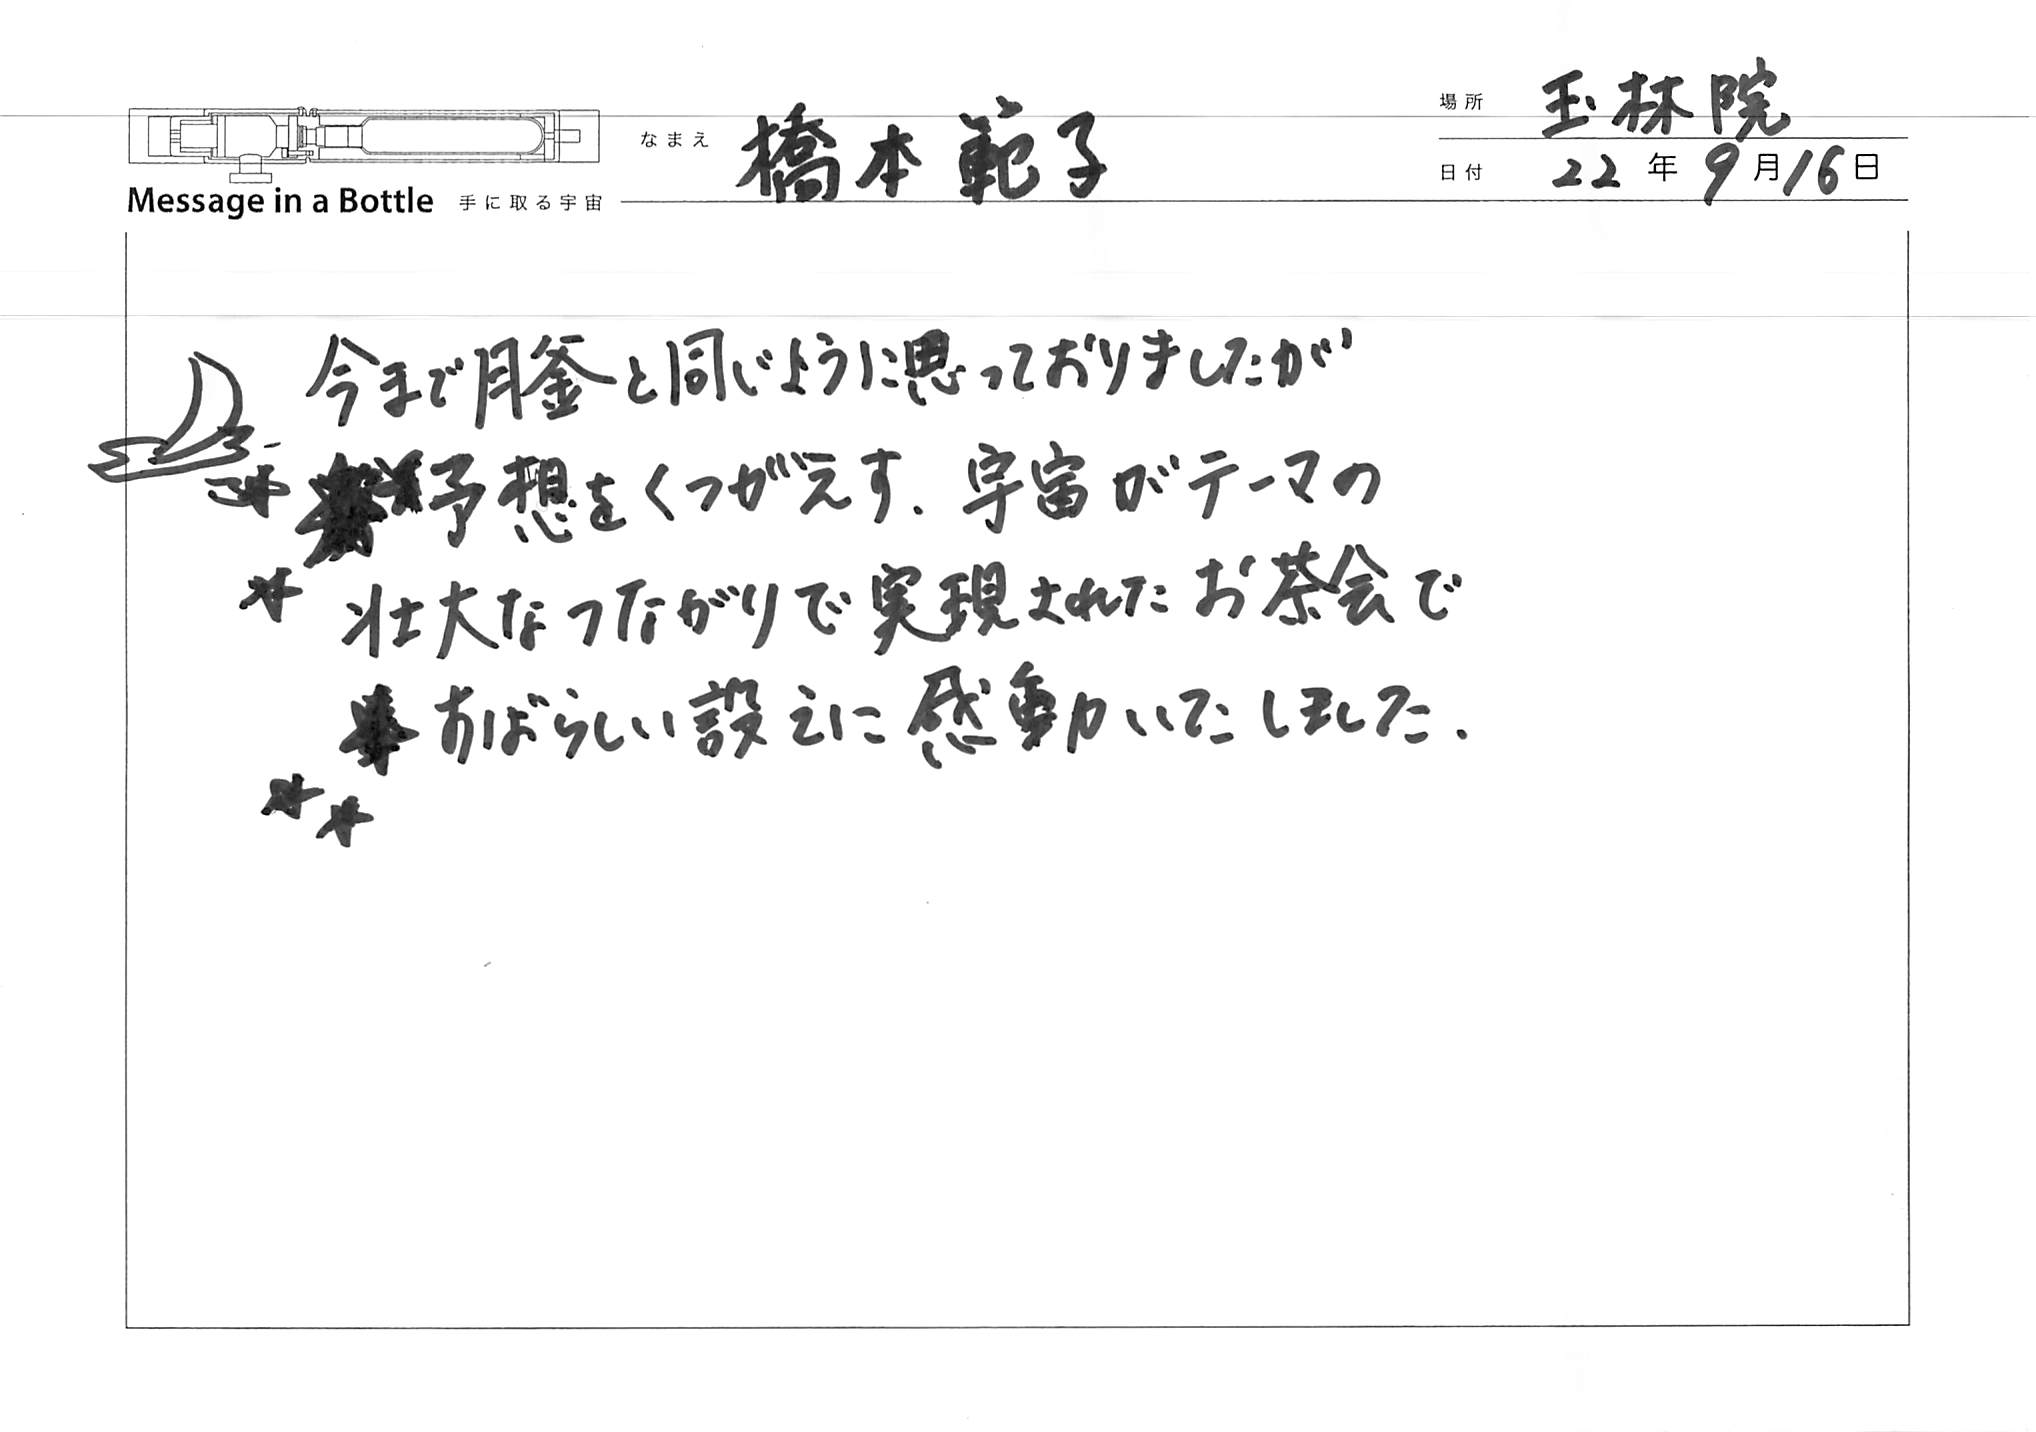 場所 玉林院
なまえ 橋本範子
日付 22年9月16日
Message in a Bottle 手に取る宇宙
今まで月釜と同じように思っておりましたが
予想をくつがえす.宇宙がテーマの
壮大なつながりで実現されたお茶会で
すばらしい設えに感動いたしました.